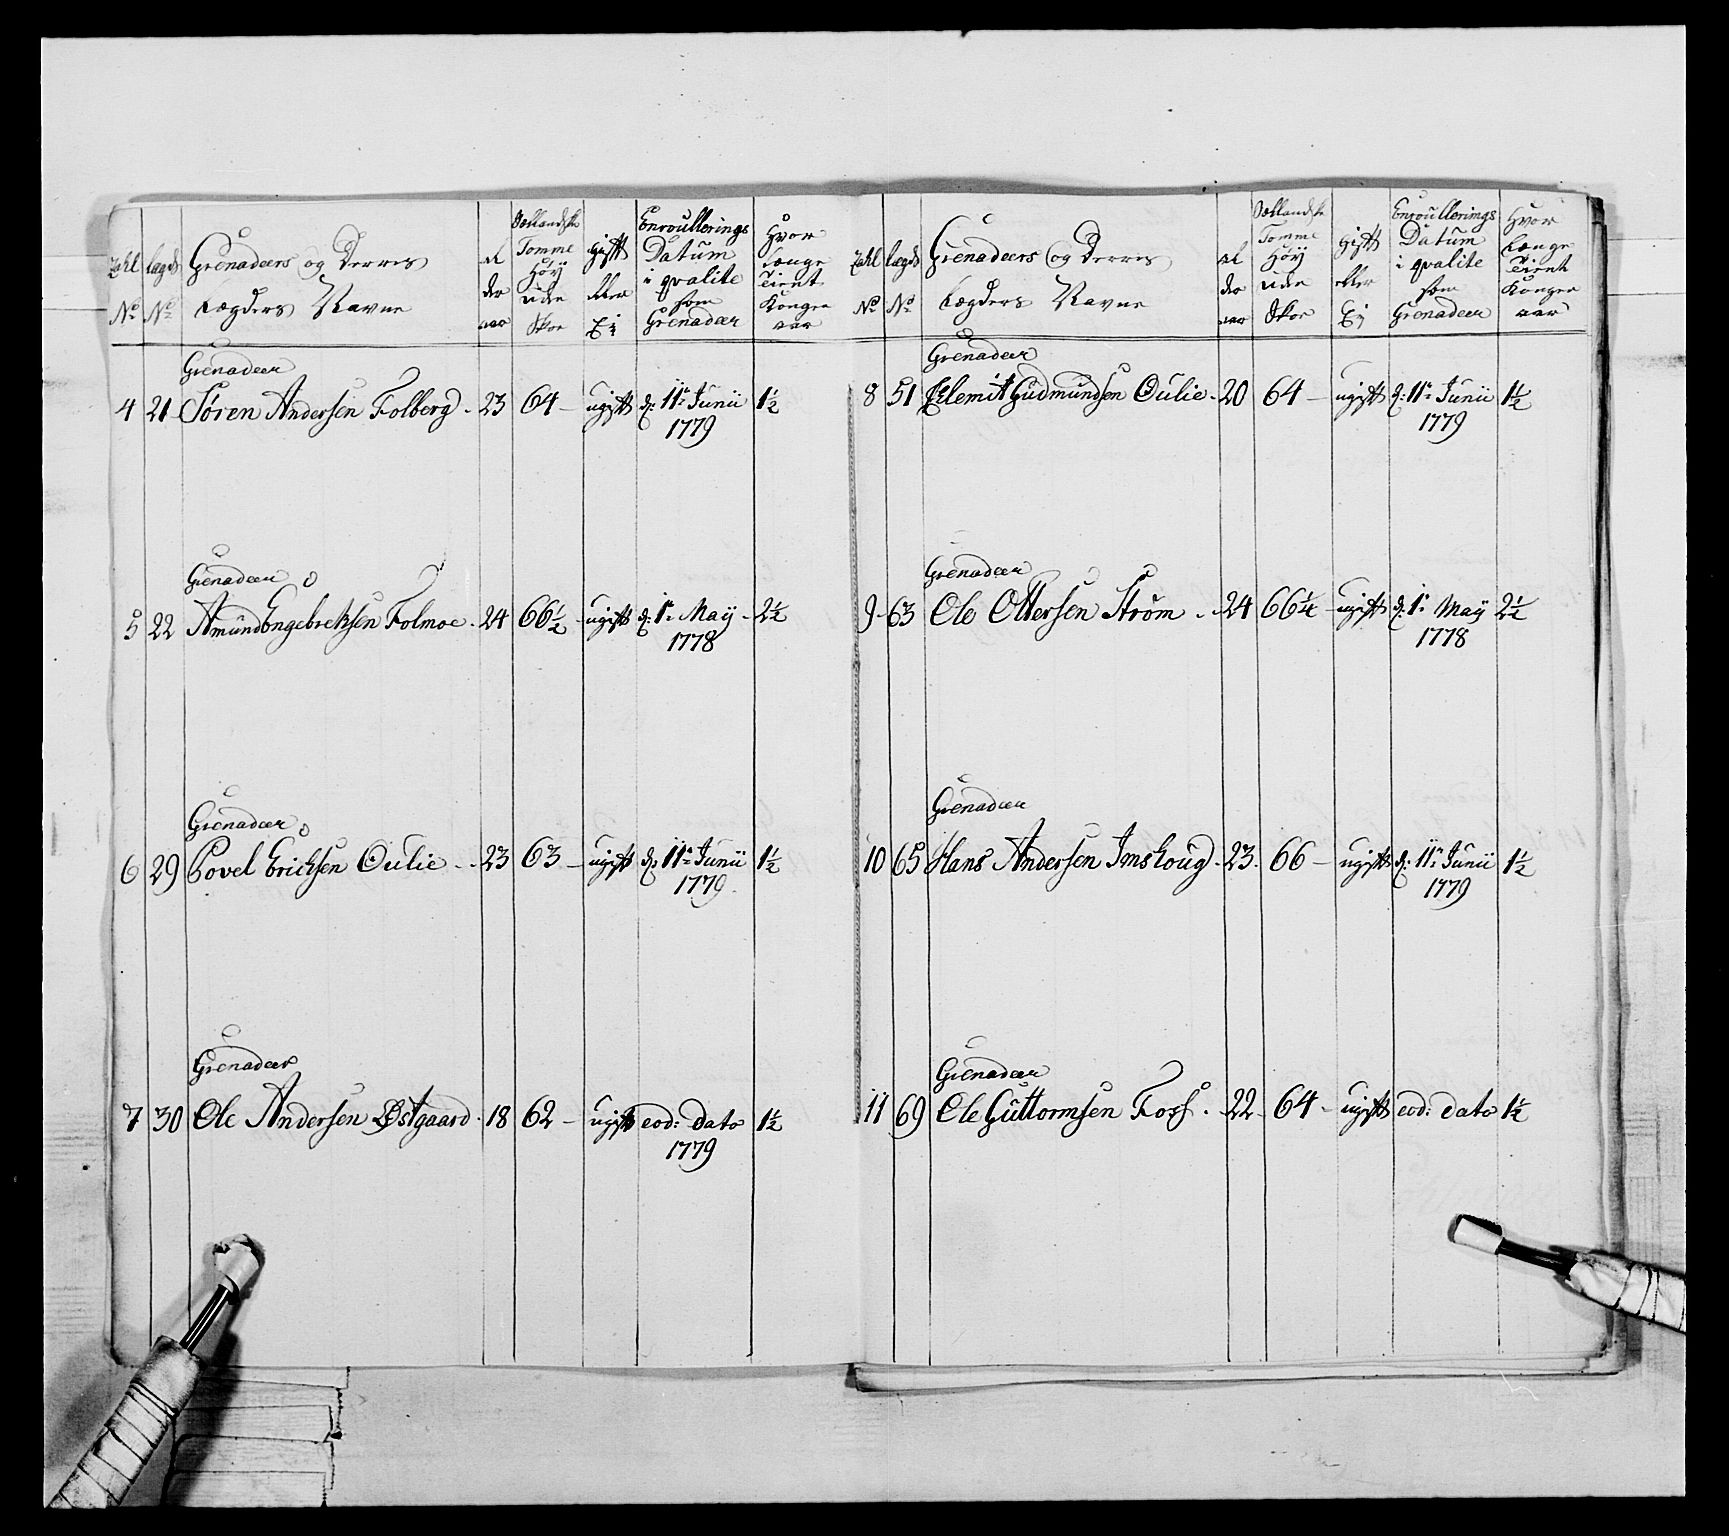 Zahl No
Lægds No
Grenadeers og Derris Lægders Navne
al der aar
Hollandske Tomme Höÿ uden Skoe
gift eller Eÿ
Enroullerings Datum i qvalite som Grenadeer
Hvor Længe Tient Kongen aar
Grenadeer
4 21 Sören Andersen Folberg. 23 64 – ugift d: 11te Junii 1½
1779
Grenadeer
5 22 Amund Engebretsen Folmoe. 24 66½ – ugift d: 1te Maÿ – 2½
1778
Grenadeer
6 29 Povel Ericksen Oulie – 23 63 – ugift d: 11te Junii 1½
1779
Grenadeer
7 30 Ole Andersen Østgaard. 18 62 – ugift eod: dato 1½
1779
Zahl No
Lægds No
Grenadeers og Derris Lægders Navne
al der aar
Hollandske Tomme Höÿ uden Skoe
gift eller Eÿ
Enroullerings Datum i qvalite som Grenadeer
Hvor Længe Tient Kongen aar
Grenadeer
8 51 Klemit Gudmundsen Oulie. 20 64 – ugift d: 11te Junii 1½
1779
Grenadeer
9 63 Ole Ottersen Ström. 24 66¼ – ugift d: 1te Maÿ 2½
1778
Grenadeer
10 65 Hans Andersen Imskoug. 23. 66 – ugift d: 11te Junii 1½
1779
Grenadeer
11 69 Ole Guttormsen Foss. 22 64 – ugift eod: dato 1½